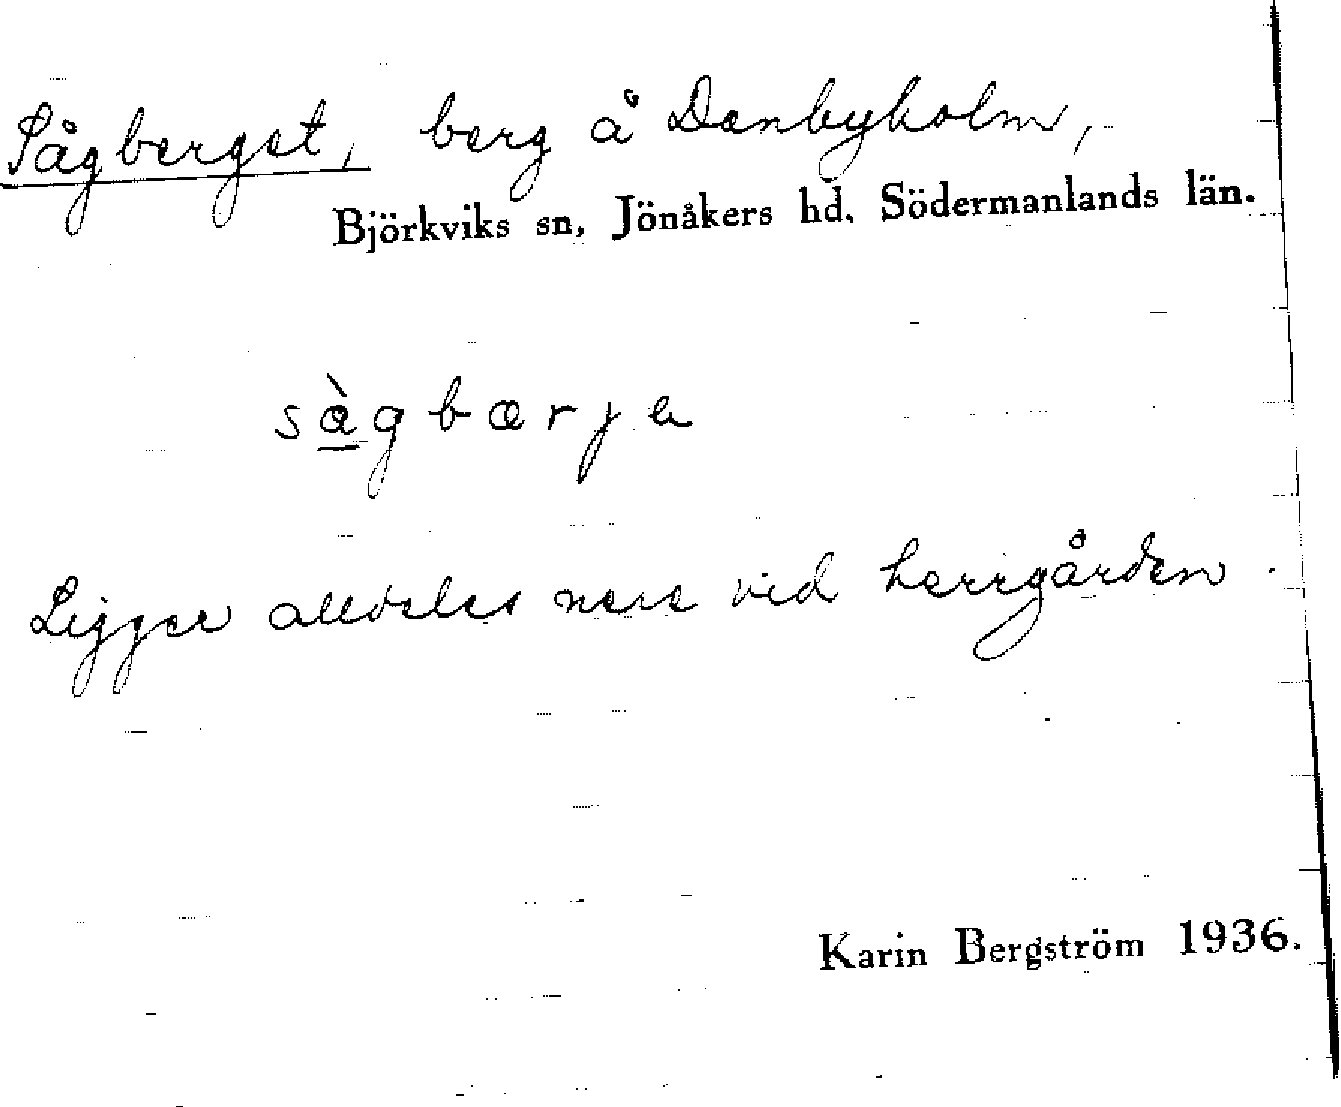 Sågberget, berg å Danbyholm,
Björkviks sn, Jönåkers hd. Södermanlands län.
sàgbærjə
Ligger alldeles nere vid herrgården.
Karin Bergström 1936.